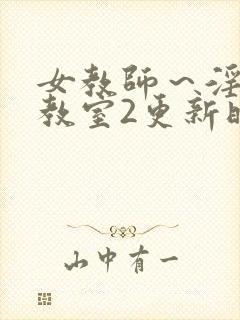 女教师~淫
教室2更新
山中有一